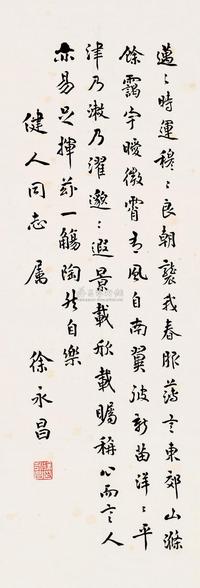 邁〻時運穆〻良朝襲我春服薄言東郊山滌
餘靄宇曖微霄有風自南翼彼新苗洋〻平
津乃漱乃濯邈〻遐景載欣載矚稱心而言人
亦易足揮茲一觴陶然自樂
健人同志属 徐永昌